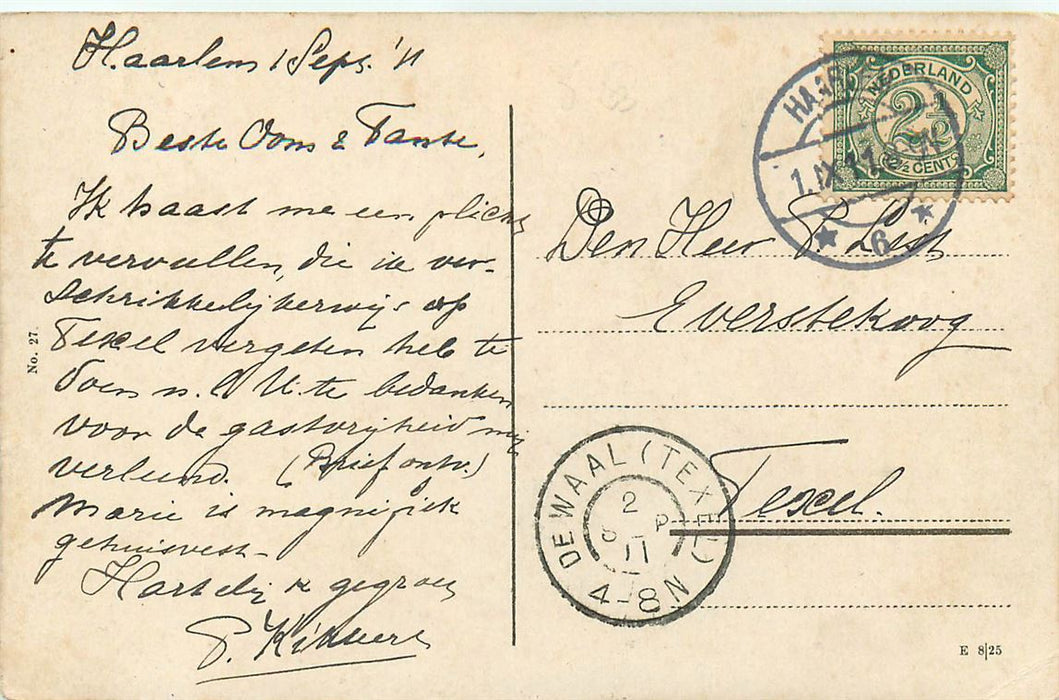 Haarlem 1 Sept. '11
Beste Oom & Tante,
Ik haast me een plicht
te vervullen, die ik ver-
schrikkelijkerwijs op
Texel vergeten heb te
doen n.l. U te bedanken
voor de gastvrijheid mij
verleend. (Brief ontv.)
Marie is magnifiek
gehuisvest.
Hartelijk gegroet
P. Kikkert
No. 27.
NEDERLAND
2½
2½ CENT
1.IX.11
6
Den Heer P.
Everstekoog
Texel.
DE WAAL (TEXEL)
2
11
4-8N
E 8|25